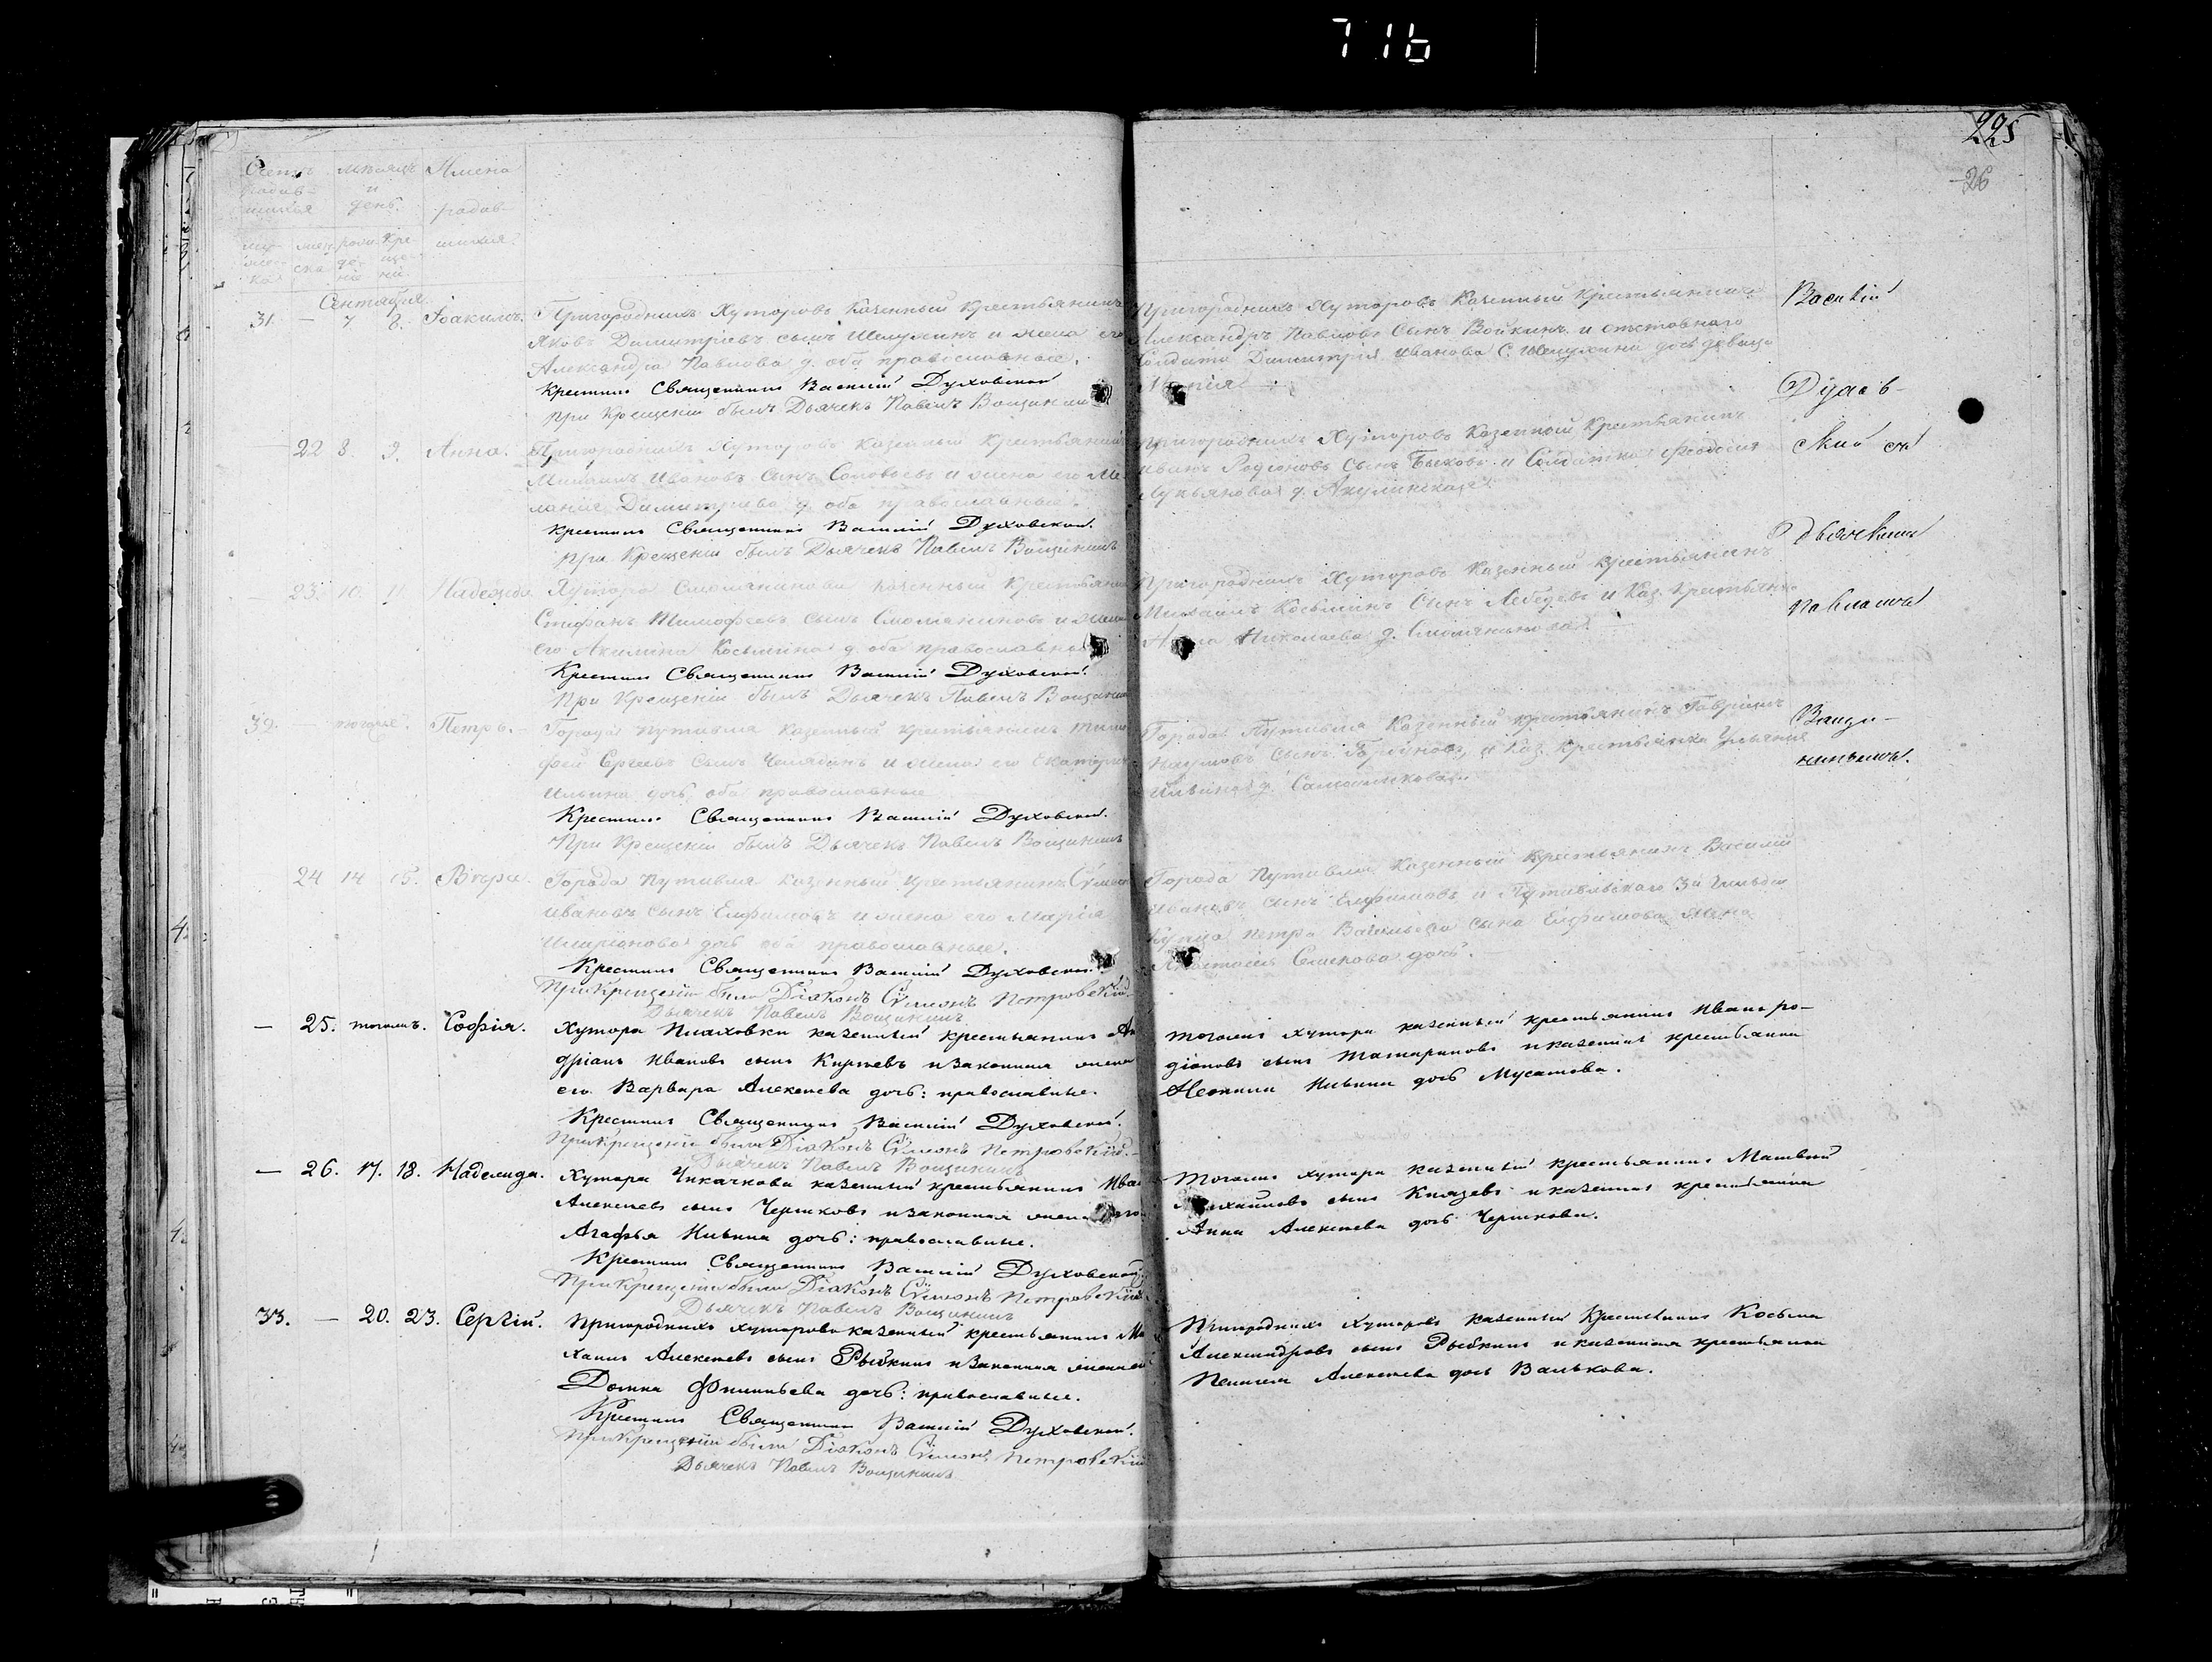 716
225
26
Счетъ родив- шихся
мѣсяцъ и день.
Имена родив- шихся.
му- жес- ка
жен ска
рож де- нія
Кре ще- нія
Сентября
31. — 7 8. Іоакимъ.
Пригородныхъ Хуторовъ Казенный Крестьянинъ
Яковъ Димитріевъ сынъ Шелухинъ и жена его
Александра Павлова д. оба православные.
Крестилъ Священникъ Василій Духовской
При Крещеніи былъ Дьячекъ Павелъ Вощининъ
Пригородныхъ Хуторовъ Казенный Крестьянинъ
Александръ Павловъ Сынъ Войкинъ и отставнаго
Солдата Димитрія Иванова С. Шелухина дочь девица
Марія
— 22 8. 9. Анна.
Пригородныхъ Хуторовъ Казенный Крестьянинъ
Михаилъ Ивановъ Сынъ Соловьевъ и жена его Ме
ланія Димитріева д. оба православные.
Крестилъ Священникъ Василій Духовской.
При Крещеніи былъ Дьячекъ Павелъ Вощининъ
Пригородныхъ Хуторовъ Казенный Крестьянинъ
Иванъ Родіоновъ Сынъ Быковъ и Солдатка Феодосія
Лукьянова д. Акулинская
— 23. 10. 11. Надежда
Хутора Смолянинова Казенный Крестьянинъ
Стефанъ Тимофеевъ сынъ Смоляниновъ и жена
его Акилина Косьмина д. оба православные
Крестилъ Священникъ Василій Духовской.
При Крещеніи былъ Дьячекъ Павелъ Вощининъ
Пригородныхъ Хуторовъ Казенный Крестьянинъ
Михаилъ Косьминъ Сынъ Лебедевъ и Каз. Крестьянка
Анна Николаева д. Смолянинова.
32. — того же. Петръ.
Города Путивля Казенный крестьянинъ Тимо
фей Сергеевъ Сынъ Челядинъ и жена его Екатерина
Ильина дочь оба православные
Крестилъ Священникъ Василій Духовской.
При Крещеніи былъ Дьячекъ Павелъ Вощининъ
Города Путивля Казенный крестьянинъ Гавріилъ
Наумовъ Сынъ Горяиновъ, и Каз. Крестьянка Ульянія
Ильина д. Самойликова
24 14 15. Вѣра.
Города Путивля Казенный крестьянинъ Сѵмеонъ
Ивановъ сынъ Ефимовъ и жена его Марія
Иларіонова дочь оба православные.
Крестилъ Священникъ Василій Духовской.
При Крещеніи были Діаконъ Сѵмеонъ Петровскій
Дьячекъ Павелъ Вощининъ
Города Путивля Казенный Крестьянинъ Василій
Ивановъ Сынъ Ефимовъ и Путивльскаго 3й Гильдіи
Купца Петра Васильева сына Ефимова жена
Анастасія Семенова дочь.
— 25. тогожъ. Софія.
Хутора Пиаховки казенный крестьянинъ Ан
дріанъ Ивановъ сынъ Киреевъ и законная жена
его Варвара Алексѣева дочь: православные.
Крестилъ Священникъ Василій Духовской.
При Крещеніи были Діаконъ Сѵмеонъ Петровскій
Дьячекъ Павелъ Вощининъ
тогожъ хутора казенный крестьянинъ Иванъ ро-
діоновъ сынъ Татариновъ и казенная крестьянка
Ильина дочь Мусатова.
— 26. 17. 18. Надежда.
Хутора Чикачкова казенный крестьянинъ Иванъ
Алексѣевъ сынъ Чериковъ и законная жена его
Агафья Ильина дочь: православные.
Крестилъ Священникъ Василій Духовской.
При Крещеніи были Діаконъ Сѵмеонъ Петровскій
Дьячекъ Павелъ Вощининъ
Тогожъ хутора казенный крестьянинъ Матвей
Михаиловъ сынъ Князевъ и казенная крестьянка
Анна Алексѣева дочь Черикова.
33. — 20. 23. Сергій.
Пригородныхъ хуторовъ казенный крестьянинъ Ми
хаилъ Алексѣевъ сынъ Рыбкинъ и законная жена его
Домна Филипьева дочь: православные.
Крестилъ Священникъ Василій Духовской.
При Крещеніи были Діаконъ Сѵмеонъ Петровскій
Дьячекъ Павелъ Вощининъ
Пригородныхъ Хуторовъ казенный Крестьянинъ Косьма
Александровъ сынъ Рыбкинъ и казенная крестьянка
Пелагея Алексѣева дочь Валькова.
Василій
Духов-
ской съ
дьячкомъ
Павломъ
Вощи-
нинымъ.